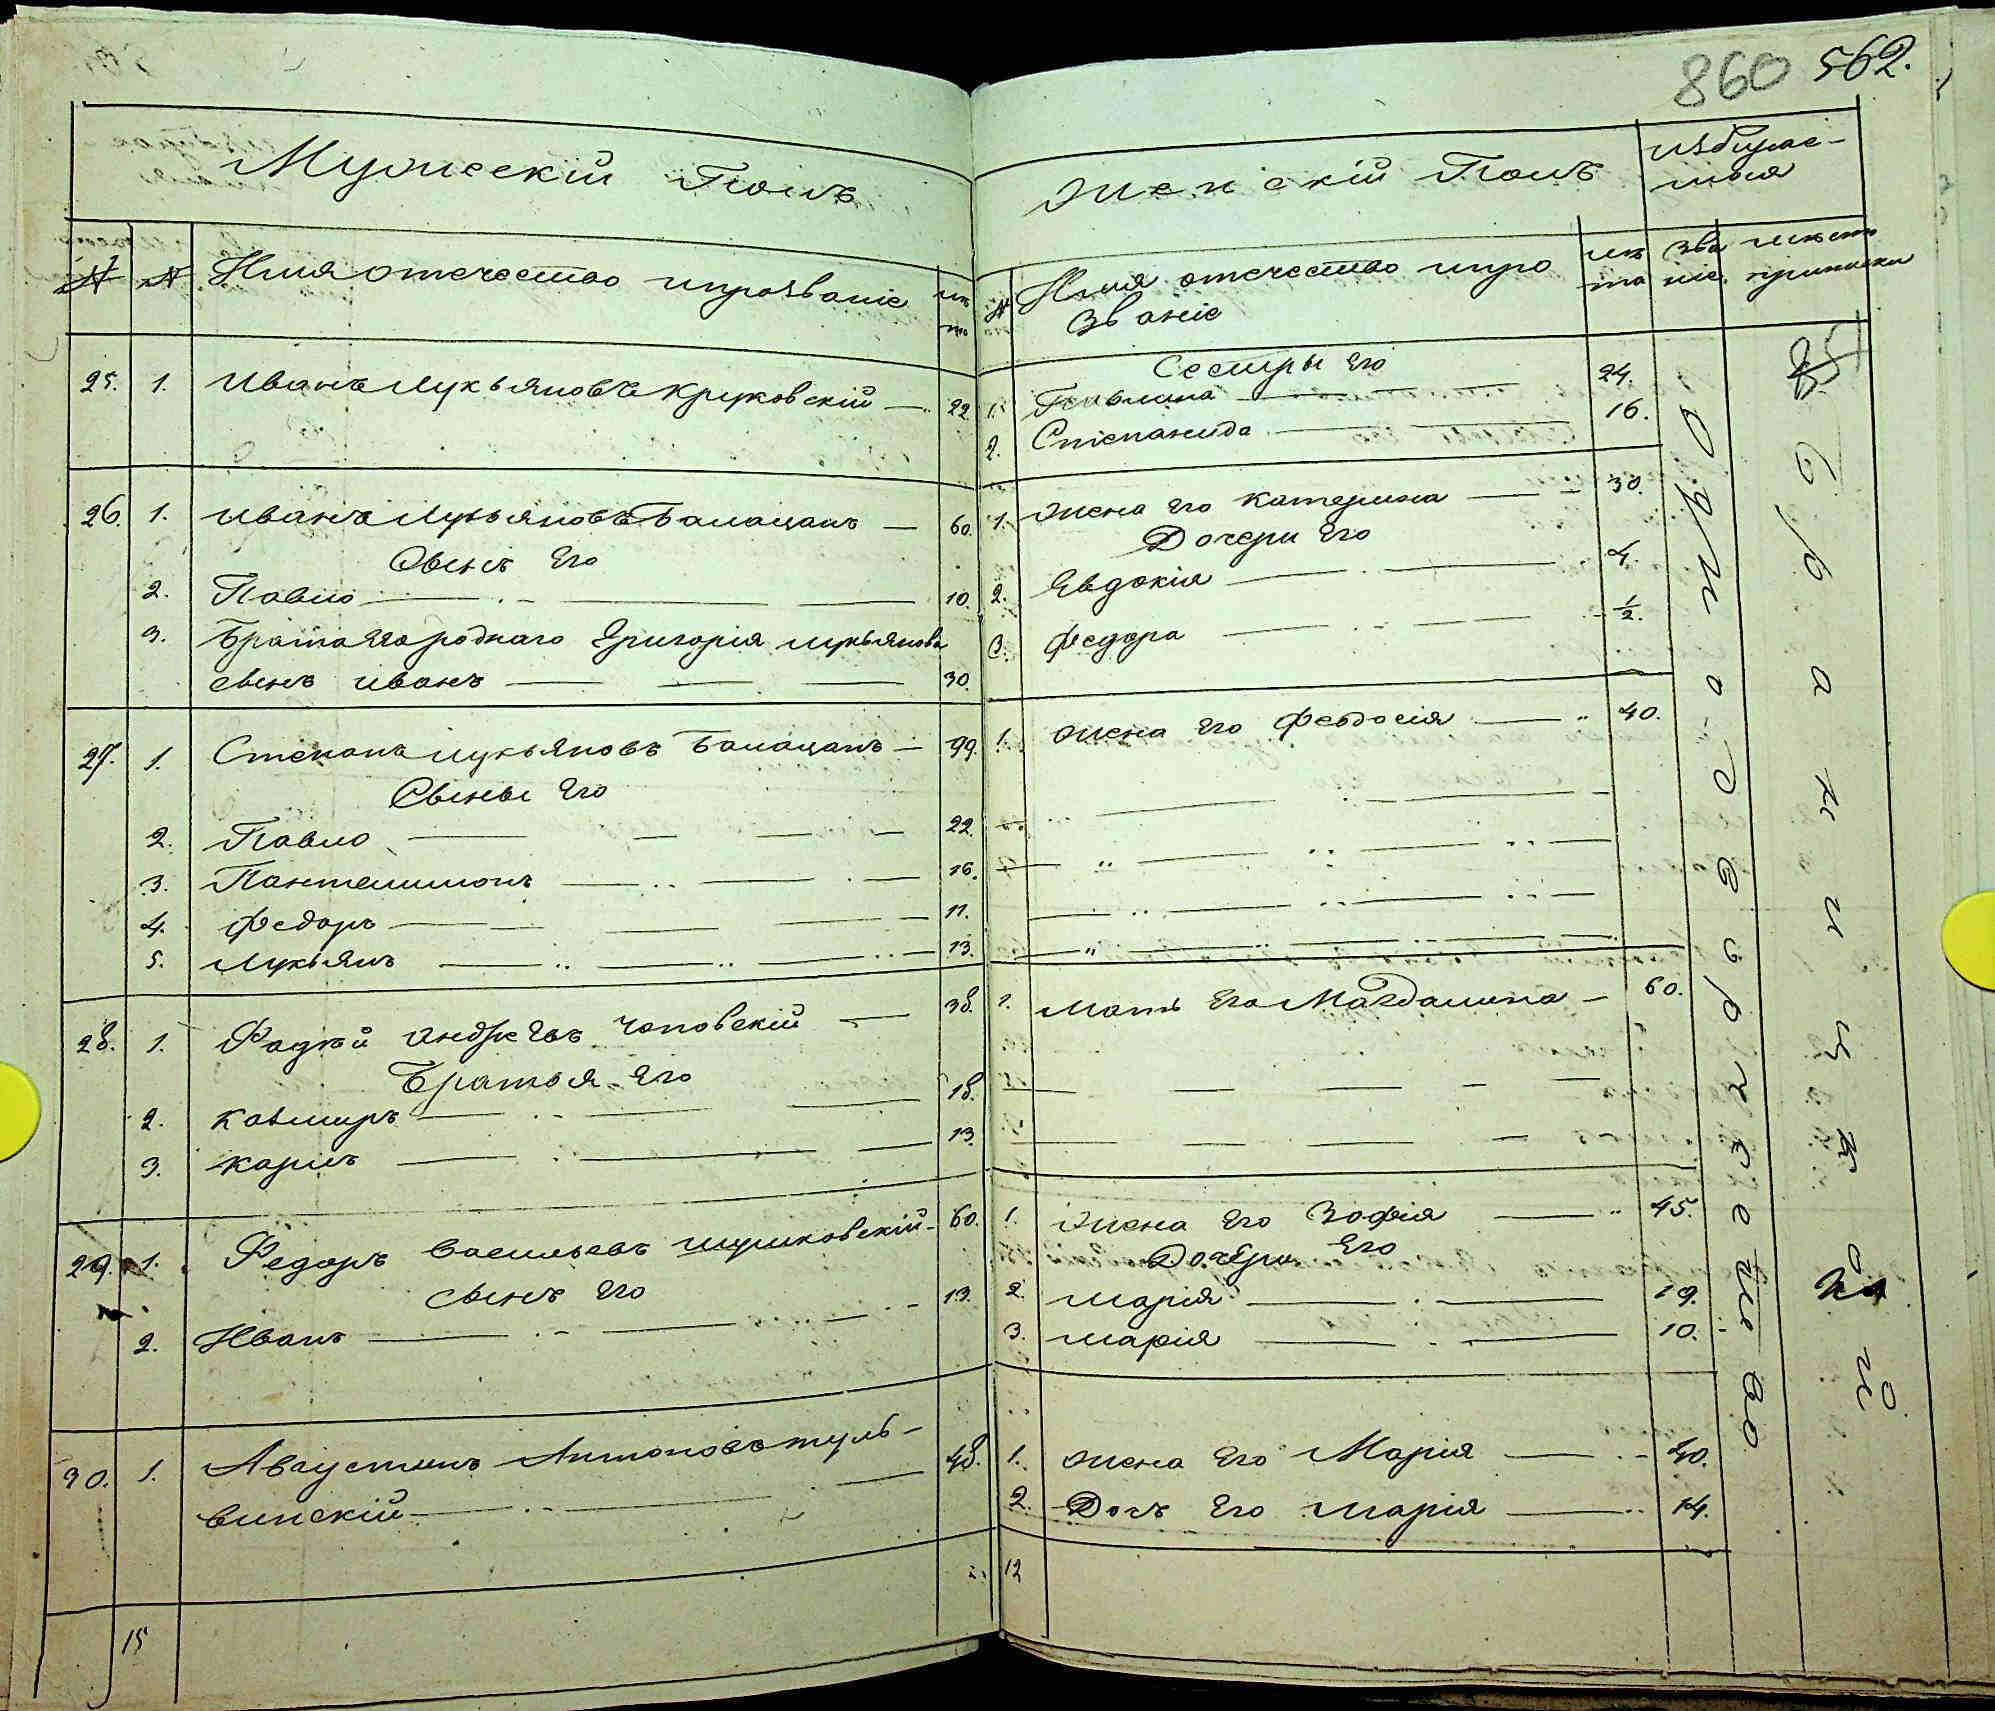 860 562.
Мужескій Полъ
№ № Имя отечество ипрозваніе лѣта
25. 1. Иванъ Лукьяновъ Круковскій — 22
26. 1. Иванъ Лукьяновъ Балацанъ — 60.
Сынъ Его
2. Павло — 10.
3. Брата Его роднаго Григорія Лукьянова
сынъ Иванъ — 30.
27. 1. Степанъ Лукьяновъ Балацанъ — 99.
Сыны Его
2. Павло — 22.
3. Пантелимонъ — 16.
4. Федоръ — 11.
5. Лукьянъ — 13.
28. 1. Фадѣй Андреевъ Чаповскій — 38.
Братья Его
2. Казмиръ — 18.
3. Карлъ — 13.
29. 1. Федоръ Васильевъ Шушковскій — 60.
сынъ Его
2. Иванъ — 13.
30. 1. Августинъ Антоновъ Туль-
винскій — 48.
15
Женскій Полъ
№ Имя отечество ипро
Званіе
лѣ
та
Зва
ніе
мѣсто
приписки
Сестры Его
1. Павлина — 24.
2. Степанида — 16.
1. Жена Его Катерина — 30.
Дочери Его
2. Евдокія — 4.
3. Федора — 1/2.
1. Жена Его Феодосія — 40.
1. Мать Его Магдалина — 60.
1. Жена Его Зофія — 45.
Дочери Его
2. Марія — 19.
3. Марія — 10.
1. Жена Его Марія — 40.
2. Дочь Его Марія — 14.
12
Одно-Дворческаго